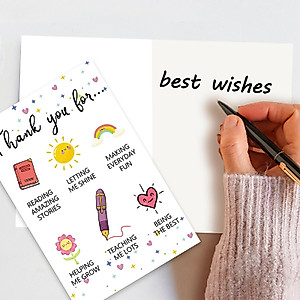 Thank you for....
READING
AMAZING
STORIES
LETTING
ME SHINE
MAKING
EVERYDAY
FUN
HELPING
ME GROW
TEACHING
ME LOTS
BEING
THE BEST
best wishes